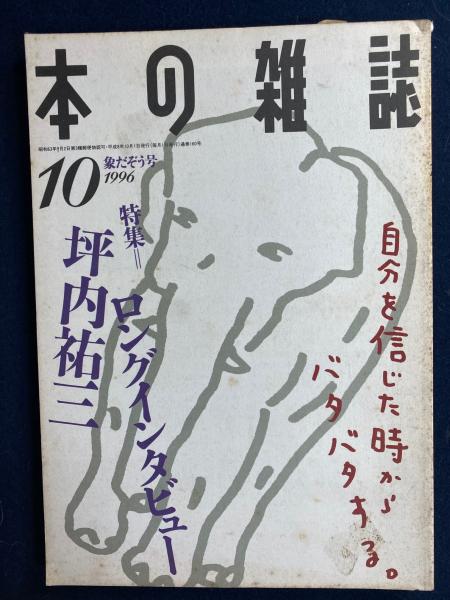 本の雑誌
昭和63年9月2日第3種郵便物認可・平成8年10月1日発行(毎月1回1日発行)通巻160号
10
象だぞう号
1996
特集=
坪内祐三
ロングインタビュー
自分を信じた時から
バタバタする。